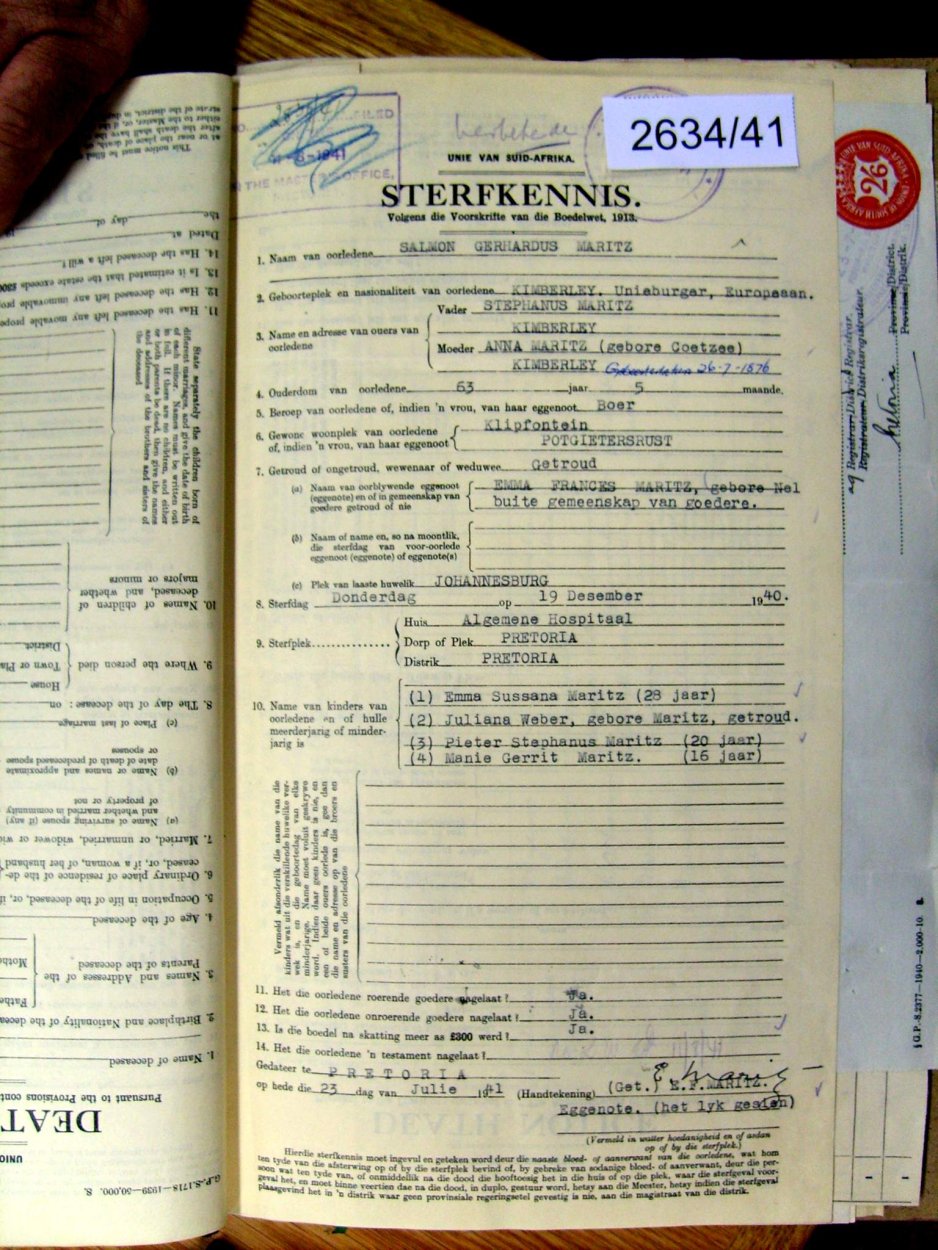 2634/41
FILED
1941
IN THE MASTER'S OFFICE,
UNIE VAN SUID-AFRIKA.
STERFKENNIS.
Volgens die Voorskrifte van die Boedelwet, 1913.
1. Naam van oorledene SALMON GERHARDUS MARITZ
2. Geboorteplek en nasionaliteit van oorledene KIMBERLEY, Unieburger, Europeaan.
3. Name en adresse van ouers van oorledene
Vader STEPHANUS MARITZ
KIMBERLEY
Moeder ANNA MARITZ (gebore Coetzee)
KIMBERLEY Geboortedatum 26-7-1876
4. Ouderdom van oorledene 63 jaar 5 maande.
5. Beroep van oorledene of, indien 'n vrou, van haar eggenoot Boer
6. Gewone woonplek van oorledene of, indien 'n vrou, van haar eggenoot
Klipfontein
POTGIETERSRUST
7. Getroud of ongetroud, wewenaar of weduwee Getroud
(a) Naam van oorblywende eggenoot (eggenote) en of in gemeenskap van goedere getroud of nie
EMMA FRANCES MARITZ, gebore Nel
buite gemeenskap van goedere.
(b) Naam of name en, so na moontlik, die sterfdag van voor-oorlede eggenoot (eggenote) of eggenote(s)
(c) Plek van laaste huwelik JOHANNESBURG
8. Sterfdag Donderdag op 19 Desember 1940.
9. Sterfplek
Huis Algemene Hospitaal
Dorp of Plek PRETORIA
Distrik PRETORIA
10. Name van kinders van oorledene en of hulle meerderjarig of minderjarig is
(1) Emma Sussana Maritz (28 jaar)
(2) Juliana Weber, gebore Maritz, getroud.
(3) Pieter Stephanus Maritz (20 jaar)
(4) Manie Gerrit Maritz. (16 jaar)
Vermeld afsonderlik die name van die
kinders wat uit die verskillende huwelike verwek is, en die geboortedag van elke
minderjarige. Name moet voluit geskrywe
word. Indien daar geen kinders is nie, en
een of beide ouers oorlede is, gee dan
die name en adresse op van die broers en
susters van die oorledene
11. Het die oorledene roerende goedere nagelaat? Ja.
12. Het die oorledene onroerende goedere nagelaat? Ja.
13. Is die boedel na skatting meer as £300 werd? Ja.
14. Het die oorledene 'n testament nagelaat?
Gedateer te PRETORIA
op hede die 23 dag van Julie 1941 (Handtekening) (Get.) E.F. MARITZ.
Eggenote. (het lyk gesien)
(Vermeld in watter hoedanigheid en of aldan
op of by die sterfplek.)
Hierdie sterfkennis moet ingevul en geteken word deur die naaste bloed- of aanverwant van die oorledene, wat hom
ten tyde van die afsterwing op of by die sterfplek bevind of, by gebreke van sodanige bloed- of aanverwant, deur die persoon
wat ten tyde van, of onmiddellik na die dood die hooftoesig het in die huis of op die plek, waar die sterfgeval voorgeval
het, en moet binne veertien dae na die dood, in duplo, gestuur word, hetsy aan die Meester, hetsy indien die sterfgeval
plaasgevind het in 'n distrik waar geen provinsiale regeringsetel gevestig is nie, aan die magistraat van die distrik.
DEAT
Pursuant to the Provisions cont
1. Name of deceased
2. Birthplace and Nationality of the decea
3. Names and Addresses of the Parents of the deceased
4. Age of the deceased
5. Occupation in life of the deceased, or, if
6. Ordinary place of residence of the deceased, or, if a woman, of her husband
7. Married, or unmarried, widower or wi
(a) Name of surviving spouse (if any) and whether married in community of property or not
(b) Name or names and approximate date of death of predeceased spouse or spouses
(c) Place of last marriage
8. The day of the decease: on
9. Where the person died
House
Town or Pla
District
10. Names of children of deceased, and whether majors or minors
State separately the children born of
different marriages, and give the date of birth
of each minor. Names must be written out
in full. If there are no children, and either
or both parents be dead, then give the names
and addresses of the brothers and sisters of
the deceased
11. Has the deceased left any movable prope
12. Has the deceased left any immovable prop
13. Is it estimated that the estate exceeds £300
14. Has the deceased left a will?
Dated at
the day of
G.P.-S.1718—1939—50,000. S.
UNIE VAN SUID-AFRIKA
UNION OF SOUTH AFRICA
2/6
Registrar-District Registrar.
Registrateur-Distriksregistrateur.
Province/District.
Provinsie/Distrik.
G.P.-S.2377—1940—2,000-10. S.